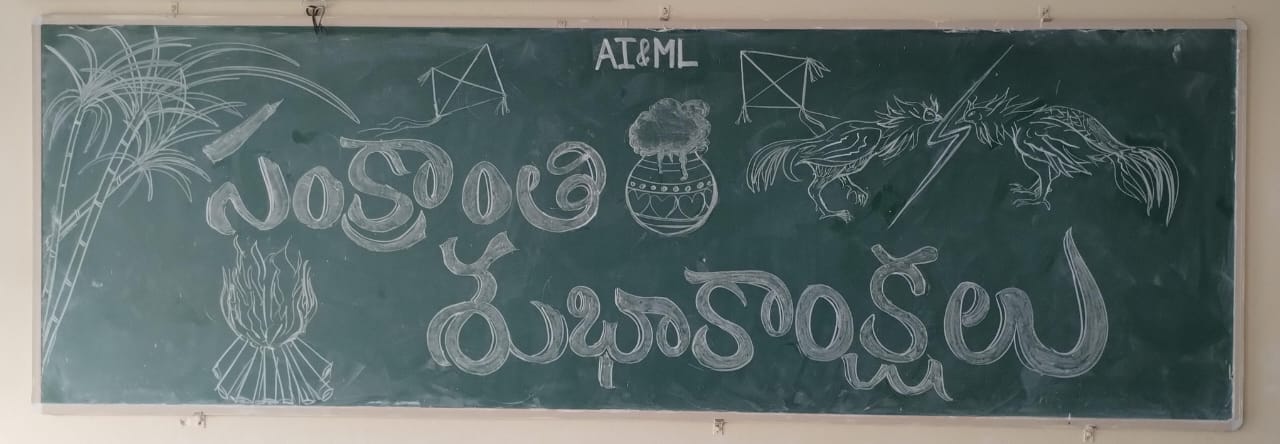 AI&ML
సంక్రాంతి
శుభాకాంక్షలు